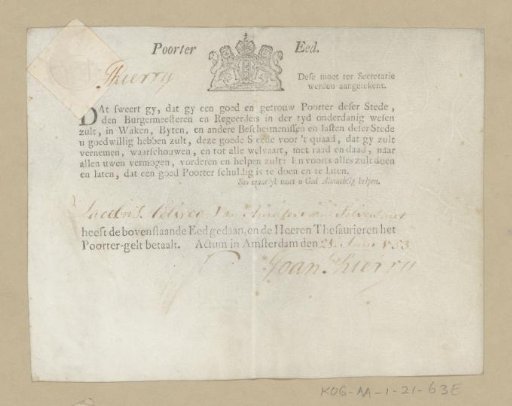 Poorter Eed.
Thierry
Dese moet ter Secretarie
werden aangetekent.
DAt sweert gy, dat gy een goed en getrouw Poorter deser Stede,
den Burgermeesteren en Regeerders in der tyd onderdanig wesen
zult, in Waken, Byten, en andere Beschermenissen en lasten deser Stede
u goedwillig hebben zult, deze goede Stede voor 't quaad, dat gy zult
vernemen, waarschouwen, en tot alle welvaart, met raad en daad, naar
allen uwen vermogen, vorderen en helpen zult: En voorts alles zult doen
en laten, dat een goed Poorter schuldig is te doen en te laten.
Soo waarlyk moet u God Almachtig helpen.
Jacob
heeft de bovenstaande Eed gedaan, en de Heeren Thesaurieren het
Poorter-gelt betaalt. Actum in Amsterdam den 23
Joan Thierry
KOG-AA-1-21-63E